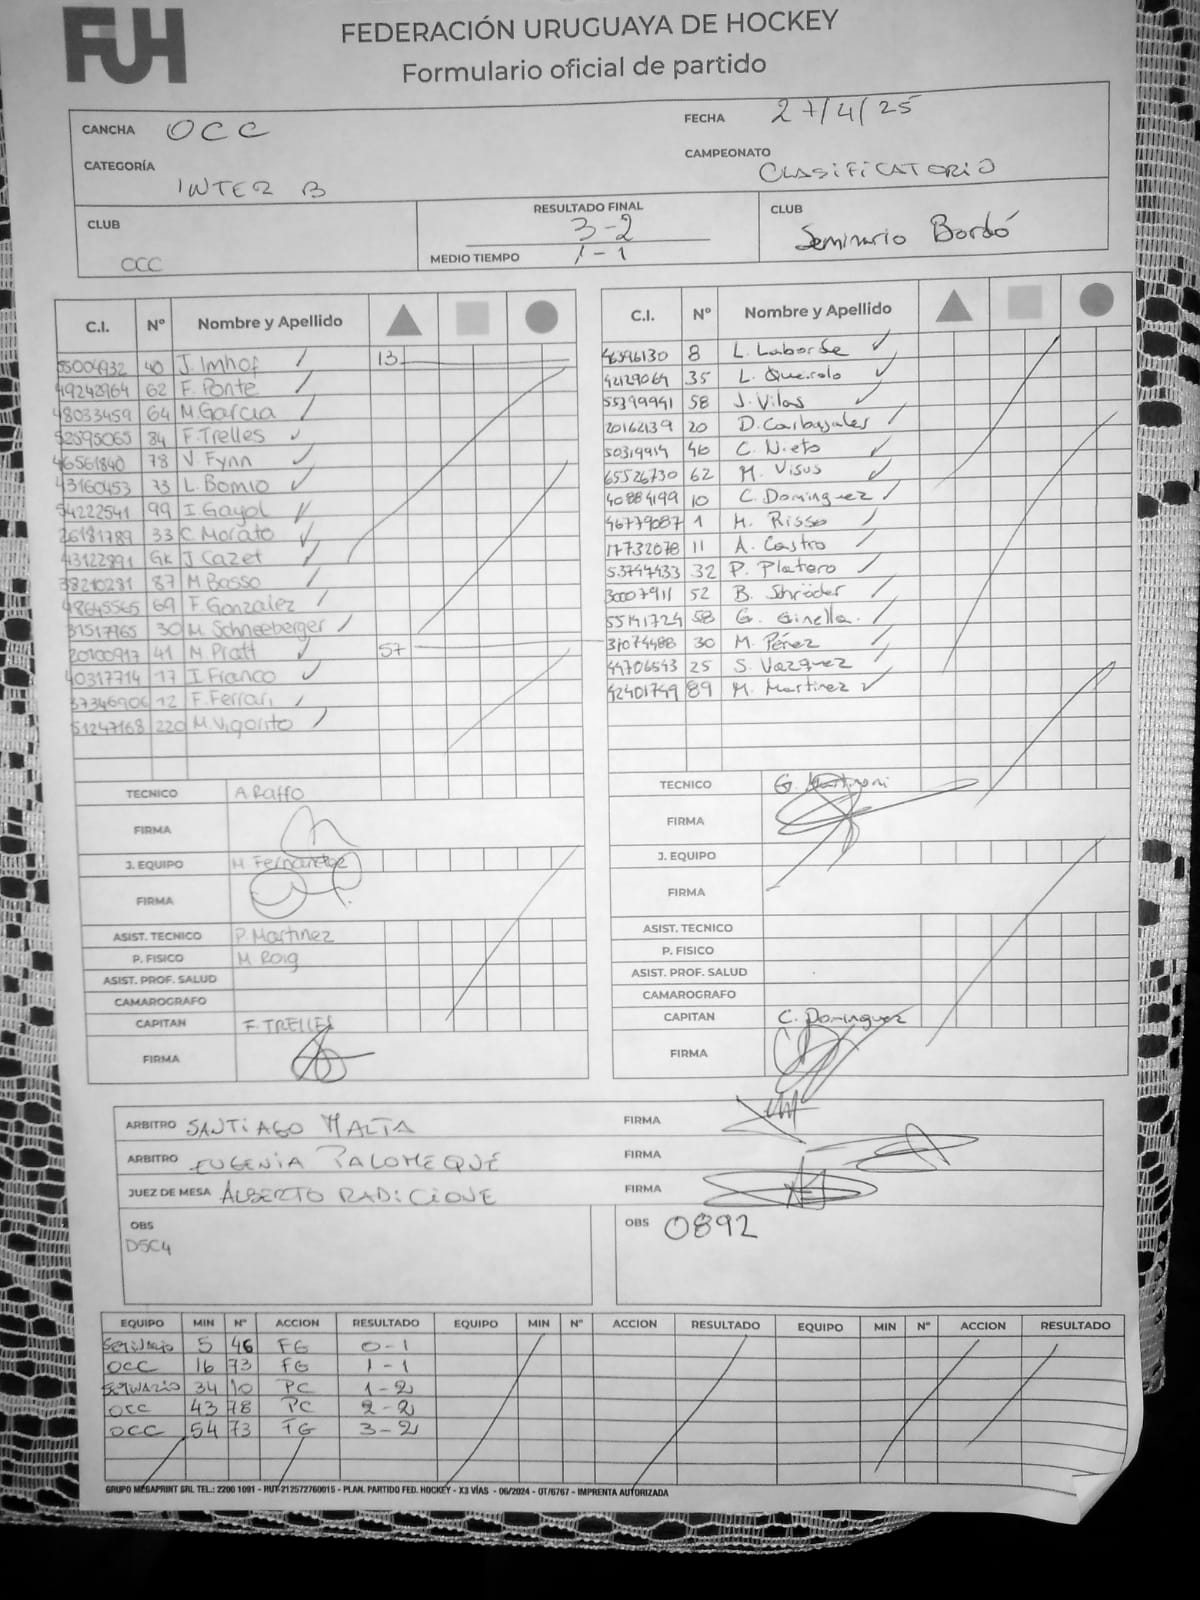 FUH
FEDERACIÓN URUGUAYA DE HOCKEY
Formulario oficial de partido
CANCHA OCC
FECHA 27/4/25
CATEGORÍA INTER B
CAMPEONATO CLASIFICATORIO
CLUB OCC
RESULTADO FINAL 3-2
MEDIO TIEMPO 1-1
CLUB Seminario Bordó
C.I. Nº Nombre y Apellido
55004932 40 J. Imhof 13
49242964 62 F. Ponte
48033459 64 M. Garcia
52595065 84 F. Trelles
46561840 78 V. Fynn
43160453 73 L. Bomio
54222541 99 I Gayol
26181789 33 C. Morato
43122891 GK J Cazet
38210281 87 M Basso
48645565 69 F. Gonzalez
31517965 30 M. Schneeberger
20100917 41 M. Pratt 57
40317714 17 I. Franco
3734690 12 F. Ferrari
51247168 220 M. Vigorito
TECNICO A. Raffo
FIRMA
J. EQUIPO M Fernandez
FIRMA
ASIST. TECNICO P. Martinez
P. FISICO M Roig
ASIST. PROF. SALUD
CAMAROGRAFO
CAPITAN F. TRELLES
FIRMA
C.I. Nº Nombre y Apellido
46596130 8 L. Laborde
42129064 35 L. Queirolo
55399991 58 J. Vilas
20162139 20 D. Carbajales
50319914 46 C. Nieto
65526730 62 M. Visus
40884199 10 C. Dominguez
46779087 1 M. Risso
17732078 11 A. Castro
53747433 32 P. Platero
30007911 52 B. Schröder
55141724 58 G. Ginella.
31074488 30 M. Pérez
44706543 25 S. Vazquez
42401749 89 M. Martinez
TECNICO G.
FIRMA
J. EQUIPO
FIRMA
ASIST. TECNICO
P. FISICO
ASIST. PROF. SALUD
CAMAROGRAFO
CAPITAN C. Dominguez
FIRMA
ARBITRO SANTIAGO MALTA FIRMA
ARBITRO EUGENIA PALOMEQUE FIRMA
JUEZ DE MESA ALBERTO RADICIONE FIRMA
OBS D5C4
OBS 0892
EQUIPO MIN Nº ACCION RESULTADO EQUIPO MIN Nº ACCION RESULTADO EQUIPO MIN Nº ACCION RESULTADO
SEMINARIO 5 46 FG 0-1
OCC 16 73 FG 1-1
SEMINARIO 34 10 PC 1-2
OCC 43 78 PC 2-2
OCC 54 73 FG 3-2
GRUPO MEGAPRINT SRL TEL.: 2200 1091 - RUT-212572760015 - PLAN. PARTIDO FED. HOCKEY - X3 VÍAS - 06/2024 - OT/6767 - IMPRENTA AUTORIZADA